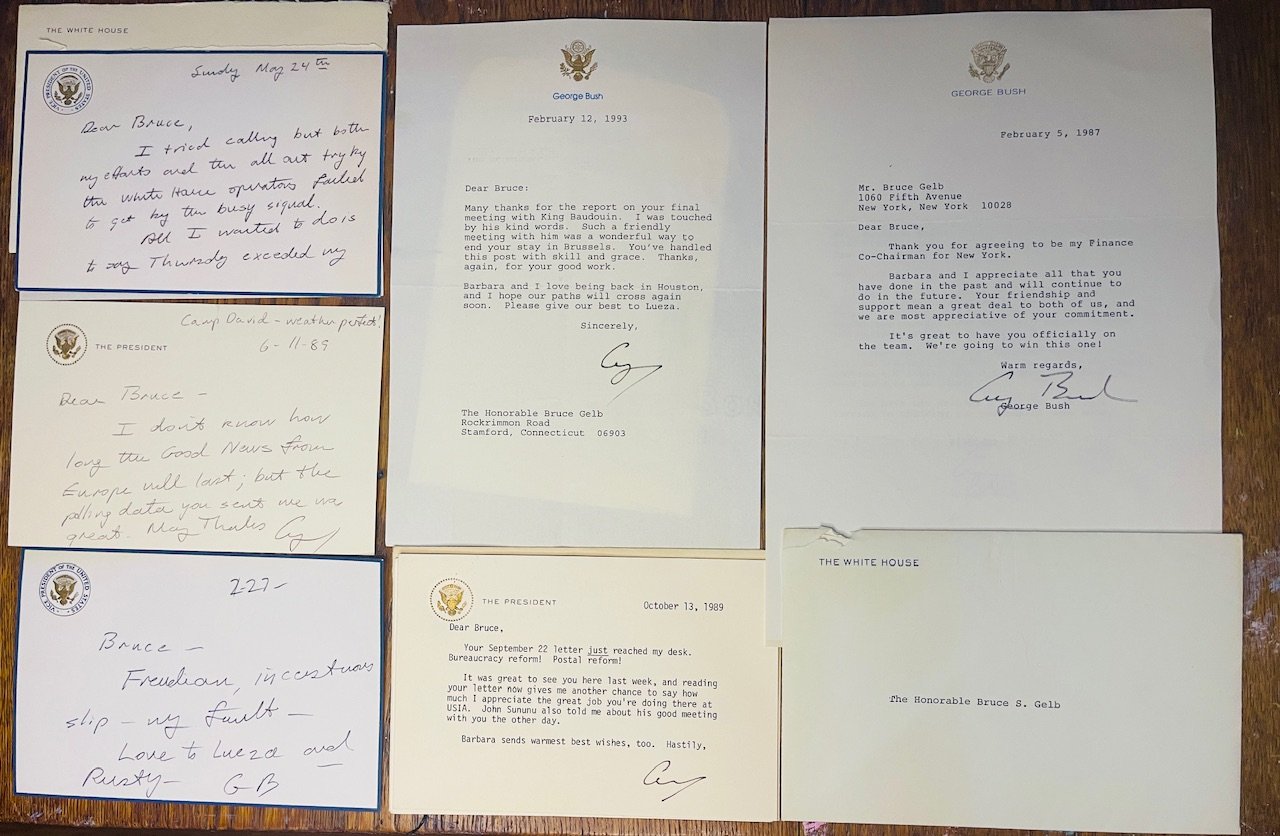 THE WHITE HOUSE
VICE PRESIDENT OF THE UNITED STATES
Sunday May 24th
Dear Bruce,
I tried calling but both
my efforts and the all out try by
the White House operators failed
to get by the busy signal.
All I wanted to do is
to say Thursday exceeded my
THE PRESIDENT
Camp David - weather perfect!
6-11-89
Dear Bruce -
I don't know how
long the Good News from
Europe will last; but the
polling data you sent me was
great. Many Thanks
VICE PRESIDENT OF THE UNITED STATES
227-
Bruce -
Freudian, incestuous
slip - my fault -
Love to Lueza and
Rusty - GB
George Bush
February 12, 1993
Dear Bruce:
Many thanks for the report on your final
meeting with King Baudouin. I was touched
by his kind words. Such a friendly
meeting with him was a wonderful way to
end your stay in Brussels. You've handled
this post with skill and grace. Thanks,
again, for your good work.
Barbara and I love being back in Houston,
and I hope our paths will cross again
soon. Please give our best to Lueza.
Sincerely,
The Honorable Bruce Gelb
Rockrimmon Road
Stamford, Connecticut 06903
THE PRESIDENT
October 13, 1989
Dear Bruce,
Your September 22 letter just reached my desk.
Bureaucracy reform! Postal reform!
It was great to see you here last week, and reading
your letter now gives me another chance to say how
much I appreciate the great job you're doing there at
USIA. John Sununu also told me about his good meeting
with you the other day.
Barbara sends warmest best wishes, too. Hastily,
GEORGE BUSH
February 5, 1987
Mr. Bruce Gelb
1060 Fifth Avenue
New York, New York 10028
Dear Bruce,
Thank you for agreeing to be my Finance
Co-Chairman for New York.
Barbara and I appreciate all that you
have done in the past and will continue to
do in the future. Your friendship and
support mean a great deal to both of us, and
we are most appreciative of your commitment.
It's great to have you officially on
the team. We're going to win this one!
Warm regards,
George Bush
THE WHITE HOUSE
The Honorable Bruce S. Gelb